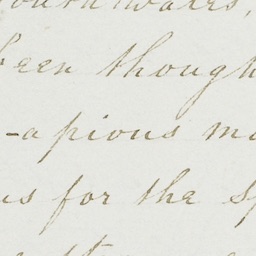 South Wales,
been though
-a pious ma
us for the sp